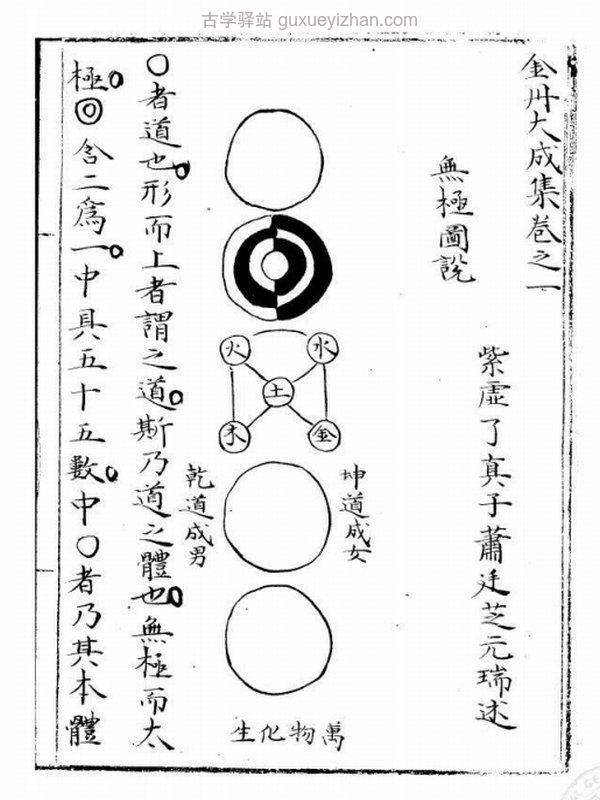 古学驿站 guxueyizhan.com
金丹大成集卷之一
紫虛了真子蕭廷芝元瑞述
無極圖說
水 火
土
金 木
坤道成女
乾道成男
萬物化生
〇者道也。形而上者謂之道。斯乃道之體也。無極而太
極。◎含二爲一。中具五十五數。中〇者乃其本體